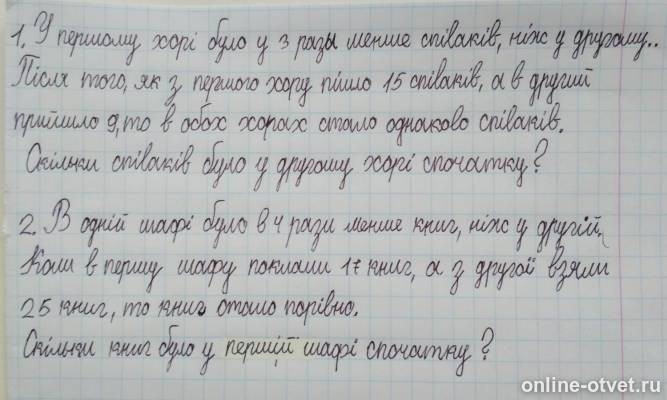 1. У першому хорі було у 3 разы менше співаків, ніж у другому..
Після того, як з першого хору пішло 15 співаків, а в другий
прийшло 9, то в обох хорах стало однаково співаків.
Скільки співаків було у другому хорі спочатку?
2. В одній шафі було в 4 рази менше книг, ніж у другій.
Коли в першу шафу поклали 17 книг, а з другої взяли
25 книг, то книг стало порівно.
Скільки книг було у першій шафі спочатку?
online-otvet.ru